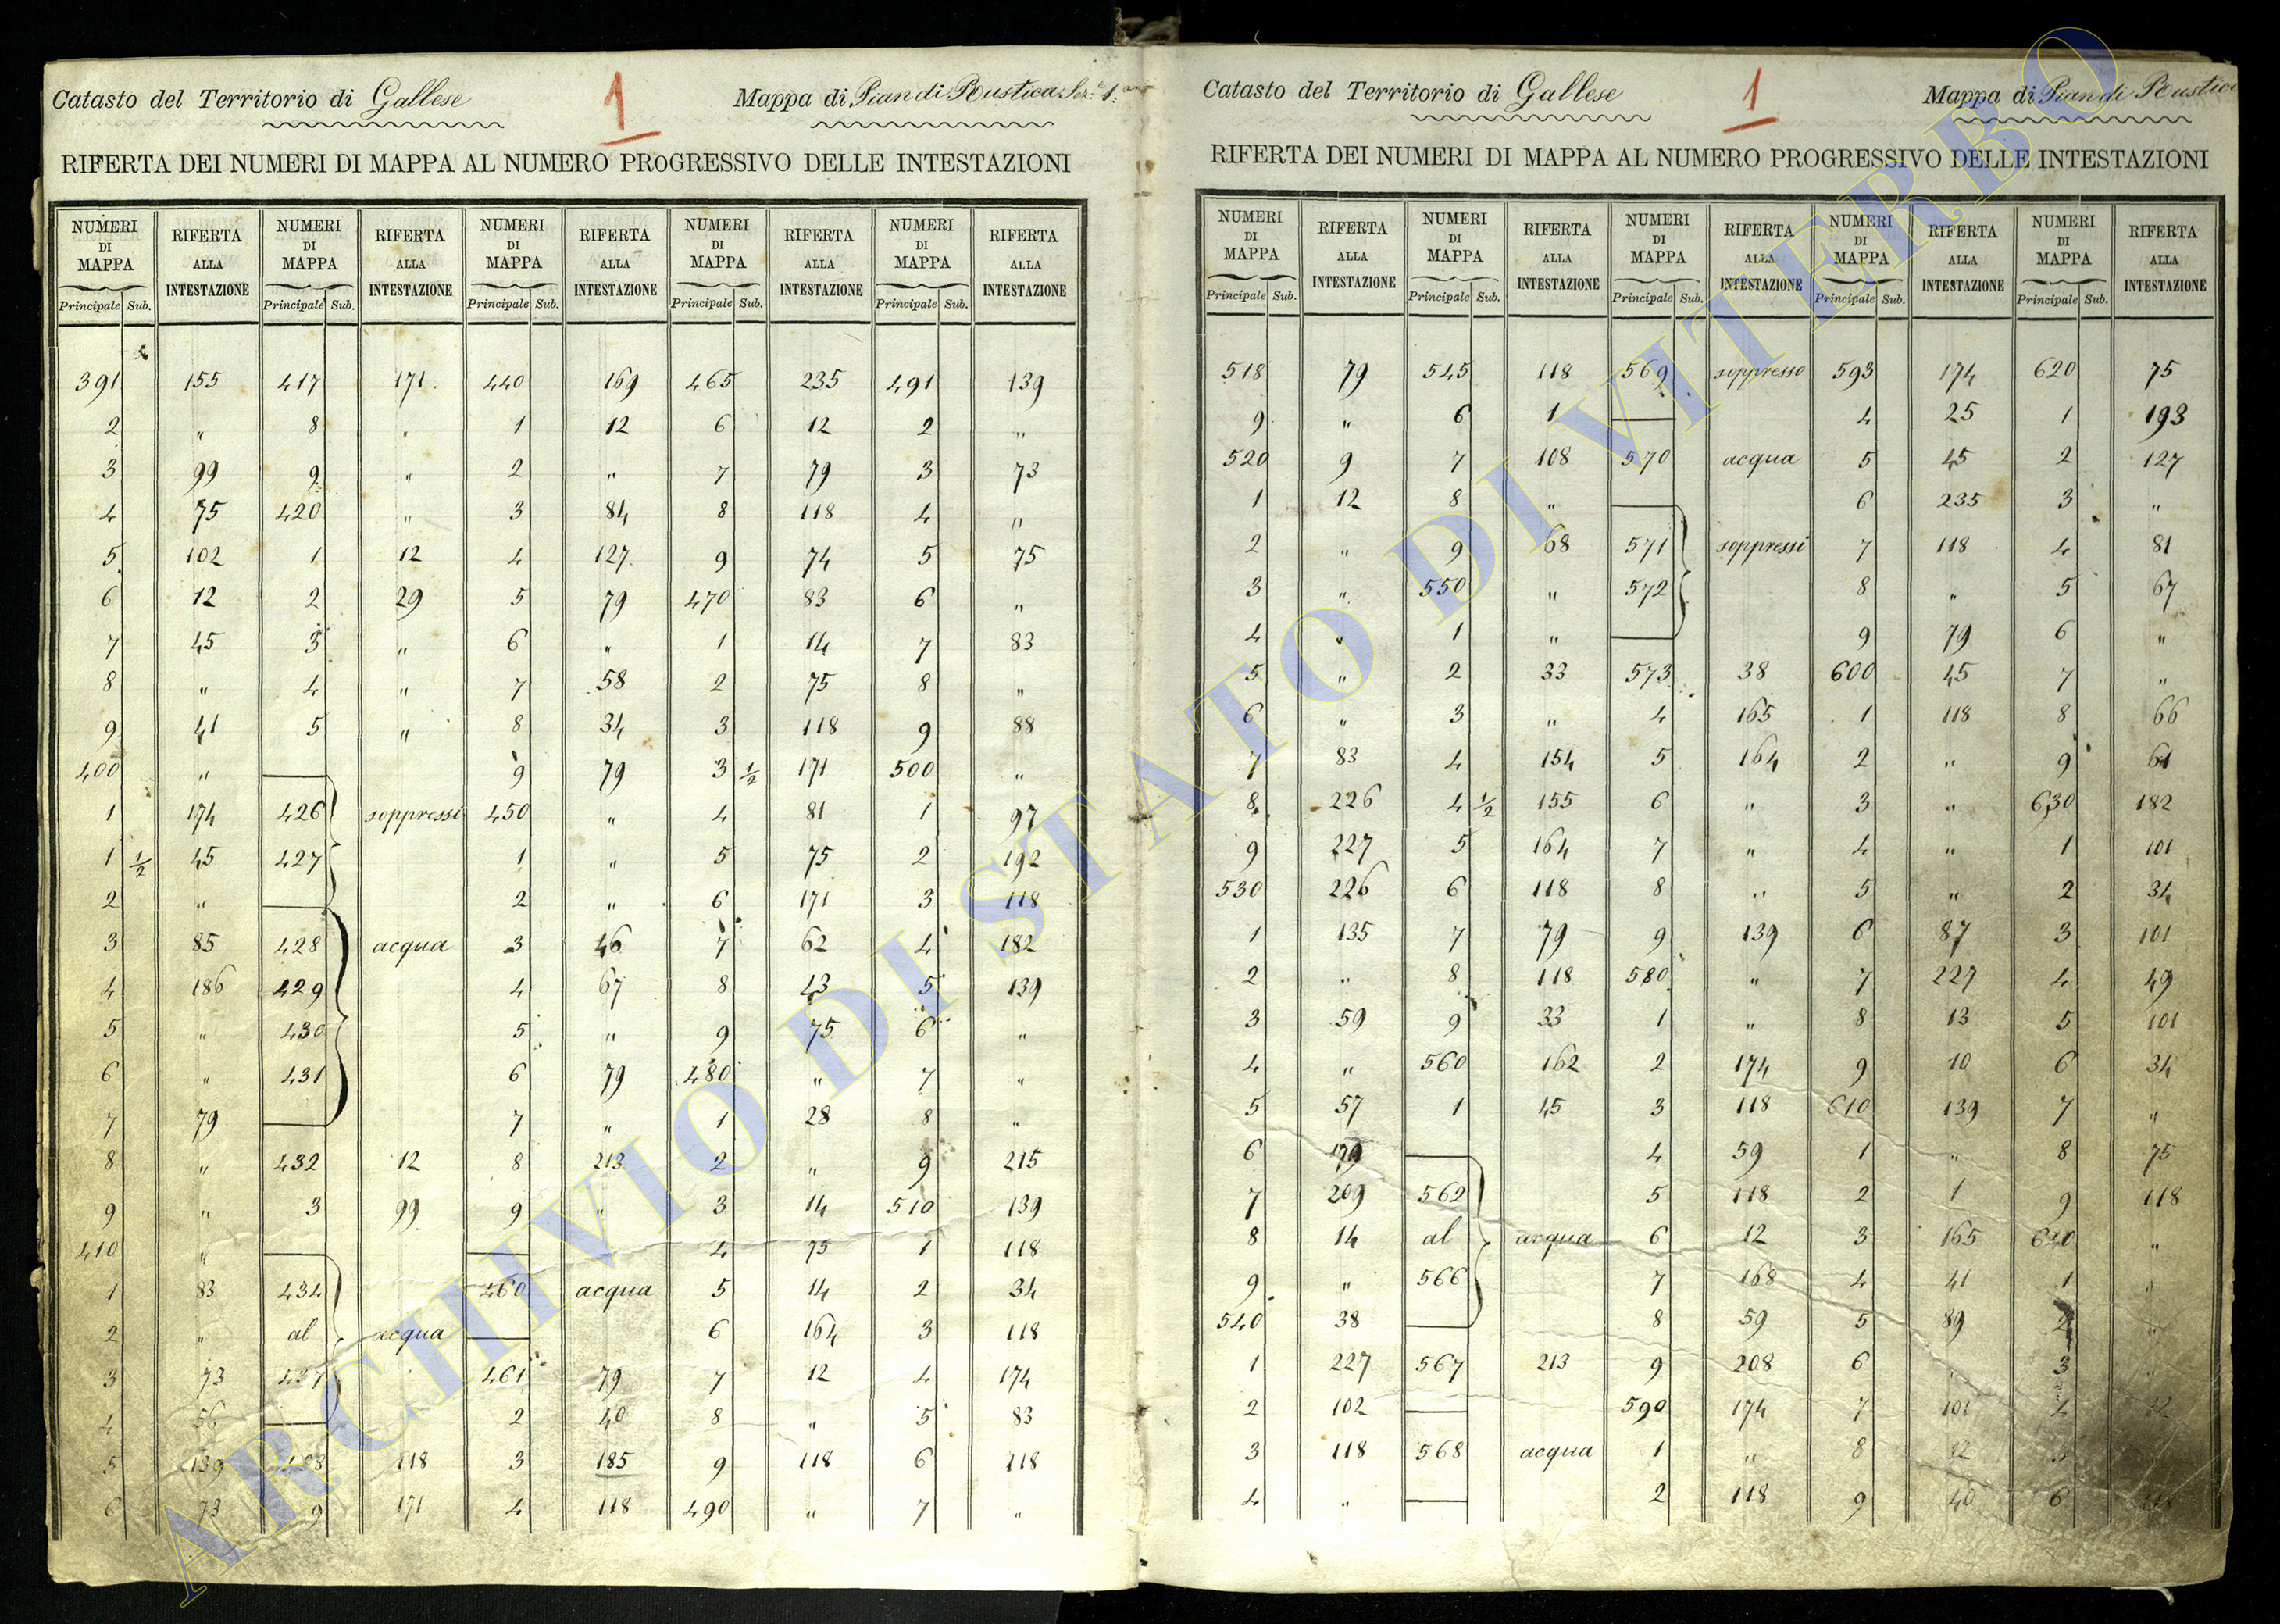 Catasto del Territorio di Gallese 1 Mappa di Pian di Rustica Sez.e 1.a
RIFERTA DEI NUMERI DI MAPPA AL NUMERO PROGRESSIVO DELLE INTESTAZIONI
NUMERI DI MAPPA RIFERTA ALLA INTESTAZIONE NUMERI DI MAPPA RIFERTA ALLA INTESTAZIONE NUMERI DI MAPPA RIFERTA ALLA INTESTAZIONE NUMERI DI MAPPA RIFERTA ALLA INTESTAZIONE NUMERI DI MAPPA RIFERTA ALLA INTESTAZIONE
Principale Sub. Principale Sub. Principale Sub. Principale Sub. Principale Sub.
391 155 417 171 440 169 465 235 491 139
2 " 8 " 1 12 6 12 2 "
3 99 9 " 2 " 7 79 3 73
4 75 420 " 3 84 8 118 4 "
5 102 1 12 4 127 9 74 5 75
6 12 2 29 5 79 470 83 6 "
7 45 3 " 6 " 1 14 7 83
8 " 4 " 7 58 2 75 8 "
9 41 5 " 8 34 3 118 9 88
400 " 9 79 3 1/2 171 500 "
1 174 426 soppressi 450 " 4 81 1 97
1 1/2 45 427 1 " 5 75 2 192
2 " 2 " 6 171 3 118
3 85 428 acqua 3 46 7 62 4 182
4 186 429 4 67 8 43 5 139
5 " 430 5 " 9 75 6 "
6 " 431 6 79 480 " 7 "
7 79 7 " 1 28 8 "
8 " 432 12 8 213 2 " 9 215
9 " 3 99 9 " 3 14 510 139
410 " 4 75 1 118
1 83 434 460 acqua 5 14 2 34
2 " al acqua 6 164 3 118
3 73 437 461 79 7 12 4 174
4 56 2 40 8 " 5 83
5 139 438 118 3 185 9 118 6 118
6 73 9 171 4 118 490 " 7 "
Catasto del Territorio di Gallese 1 Mappa di Pian di Rustica
RIFERTA DEI NUMERI DI MAPPA AL NUMERO PROGRESSIVO DELLE INTESTAZIONI
NUMERI DI MAPPA RIFERTA ALLA INTESTAZIONE NUMERI DI MAPPA RIFERTA ALLA INTESTAZIONE NUMERI DI MAPPA RIFERTA ALLA INTESTAZIONE NUMERI DI MAPPA RIFERTA ALLA INTESTAZIONE NUMERI DI MAPPA RIFERTA ALLA INTESTAZIONE
Principale Sub. Principale Sub. Principale Sub. Principale Sub. Principale Sub.
518 79 545 118 569 soppresso 593 174 620 75
9 " 6 1 4 25 1 193
520 9 7 108 570 acqua 5 45 2 127
1 12 8 " 6 235 3 "
2 " 9 68 571 soppressi 7 118 4 81
3 " 550 " 572 8 " 5 67
4 " 1 " 9 79 6 "
5 " 2 33 573 38 600 45 7 "
6 " 3 " 4 165 1 118 8 66
7 83 4 154 5 164 2 " 9 61
8 226 4 1/2 155 6 " 3 " 630 182
9 227 5 164 7 " 4 " 1 101
530 226 6 118 8 " 5 " 2 34
1 135 7 79 9 139 6 87 3 101
2 " 8 118 580 " 7 227 4 49
3 59 9 33 1 " 8 13 5 101
4 " 560 162 2 174 9 10 6 34
5 57 1 45 3 118 610 139 7 "
6 179 4 59 1 " 8 75
7 209 562 5 118 2 1 9 118
8 14 al acqua 6 12 3 165 640 "
9 " 566 7 168 4 41 1 "
540 38 8 59 5 89 2 "
1 227 567 213 9 208 6 " 3 "
2 102 590 174 7 101 4 12
3 118 568 acqua 1 " 8 12 5
4 " 2 118 9 40 6 118
ARCHIVIO DI STATO DI VITERBO